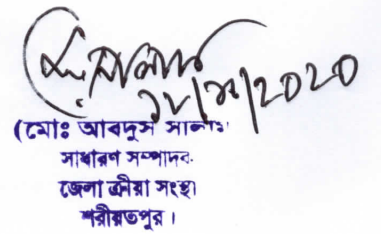 ১৮/৯/2020
(মোঃ আবদুস সালাম
সাধারণ সম্পাদক
জেলা ক্রীয়া সংস্থা
শরীয়তপুর।